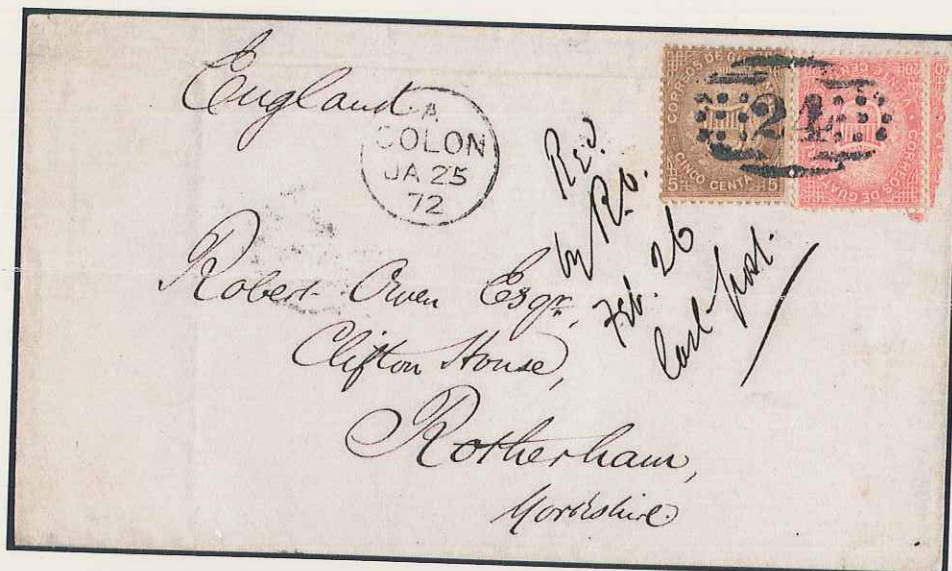 England.
A
COLON
JA 25
72
CORREOS DE
CINCO CENT
5
5
24
CORREOS DE GUA
Recd
by R.O.
Feb. 26
last post.
Robert Owen Esqr,
Clifton House,
Rotherham,
Yorkshire.